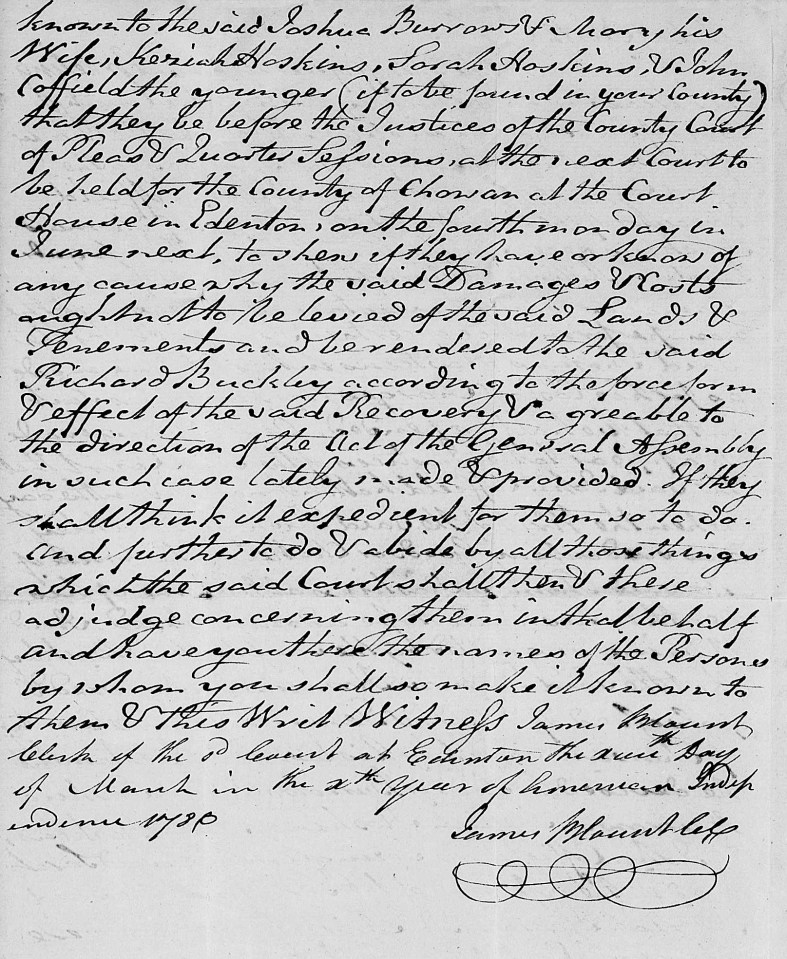 known to the said Joshua Burrows & Mary his
Wife, Keziah Hoskins, Sarah Hoskins, & John
Coffield the younger (if to be found in your County)
that they be before the Justices of the County Court
of Pleas & Quarter Sessions, at the next Court to
be held for the County of Chowan at the Court
House in Edenton, on the fourth monday in
June next, to shew if they have or know of
any cause why the said Damages & Costs
aught not to be levied of the said Lands &
Tenements and be rendered to the said
Richard Buckley according to the force form
& effect of the said Recovery & agreable to
the direction of the Act of the General Assembly
in such case lately made & provided. If they
shall think it expedient for them so to do.
and further to do & abide by all those things
which the said Court shall then & there
adjudge concerning them in that behalf
and have you there the names of the Persons
by whom you shall so make it known to
them & this Writ Witness James Blount
Clerk of the sd Court at Edenton the Day
of March in the xth year of American Indep
endence
James Blount Clk